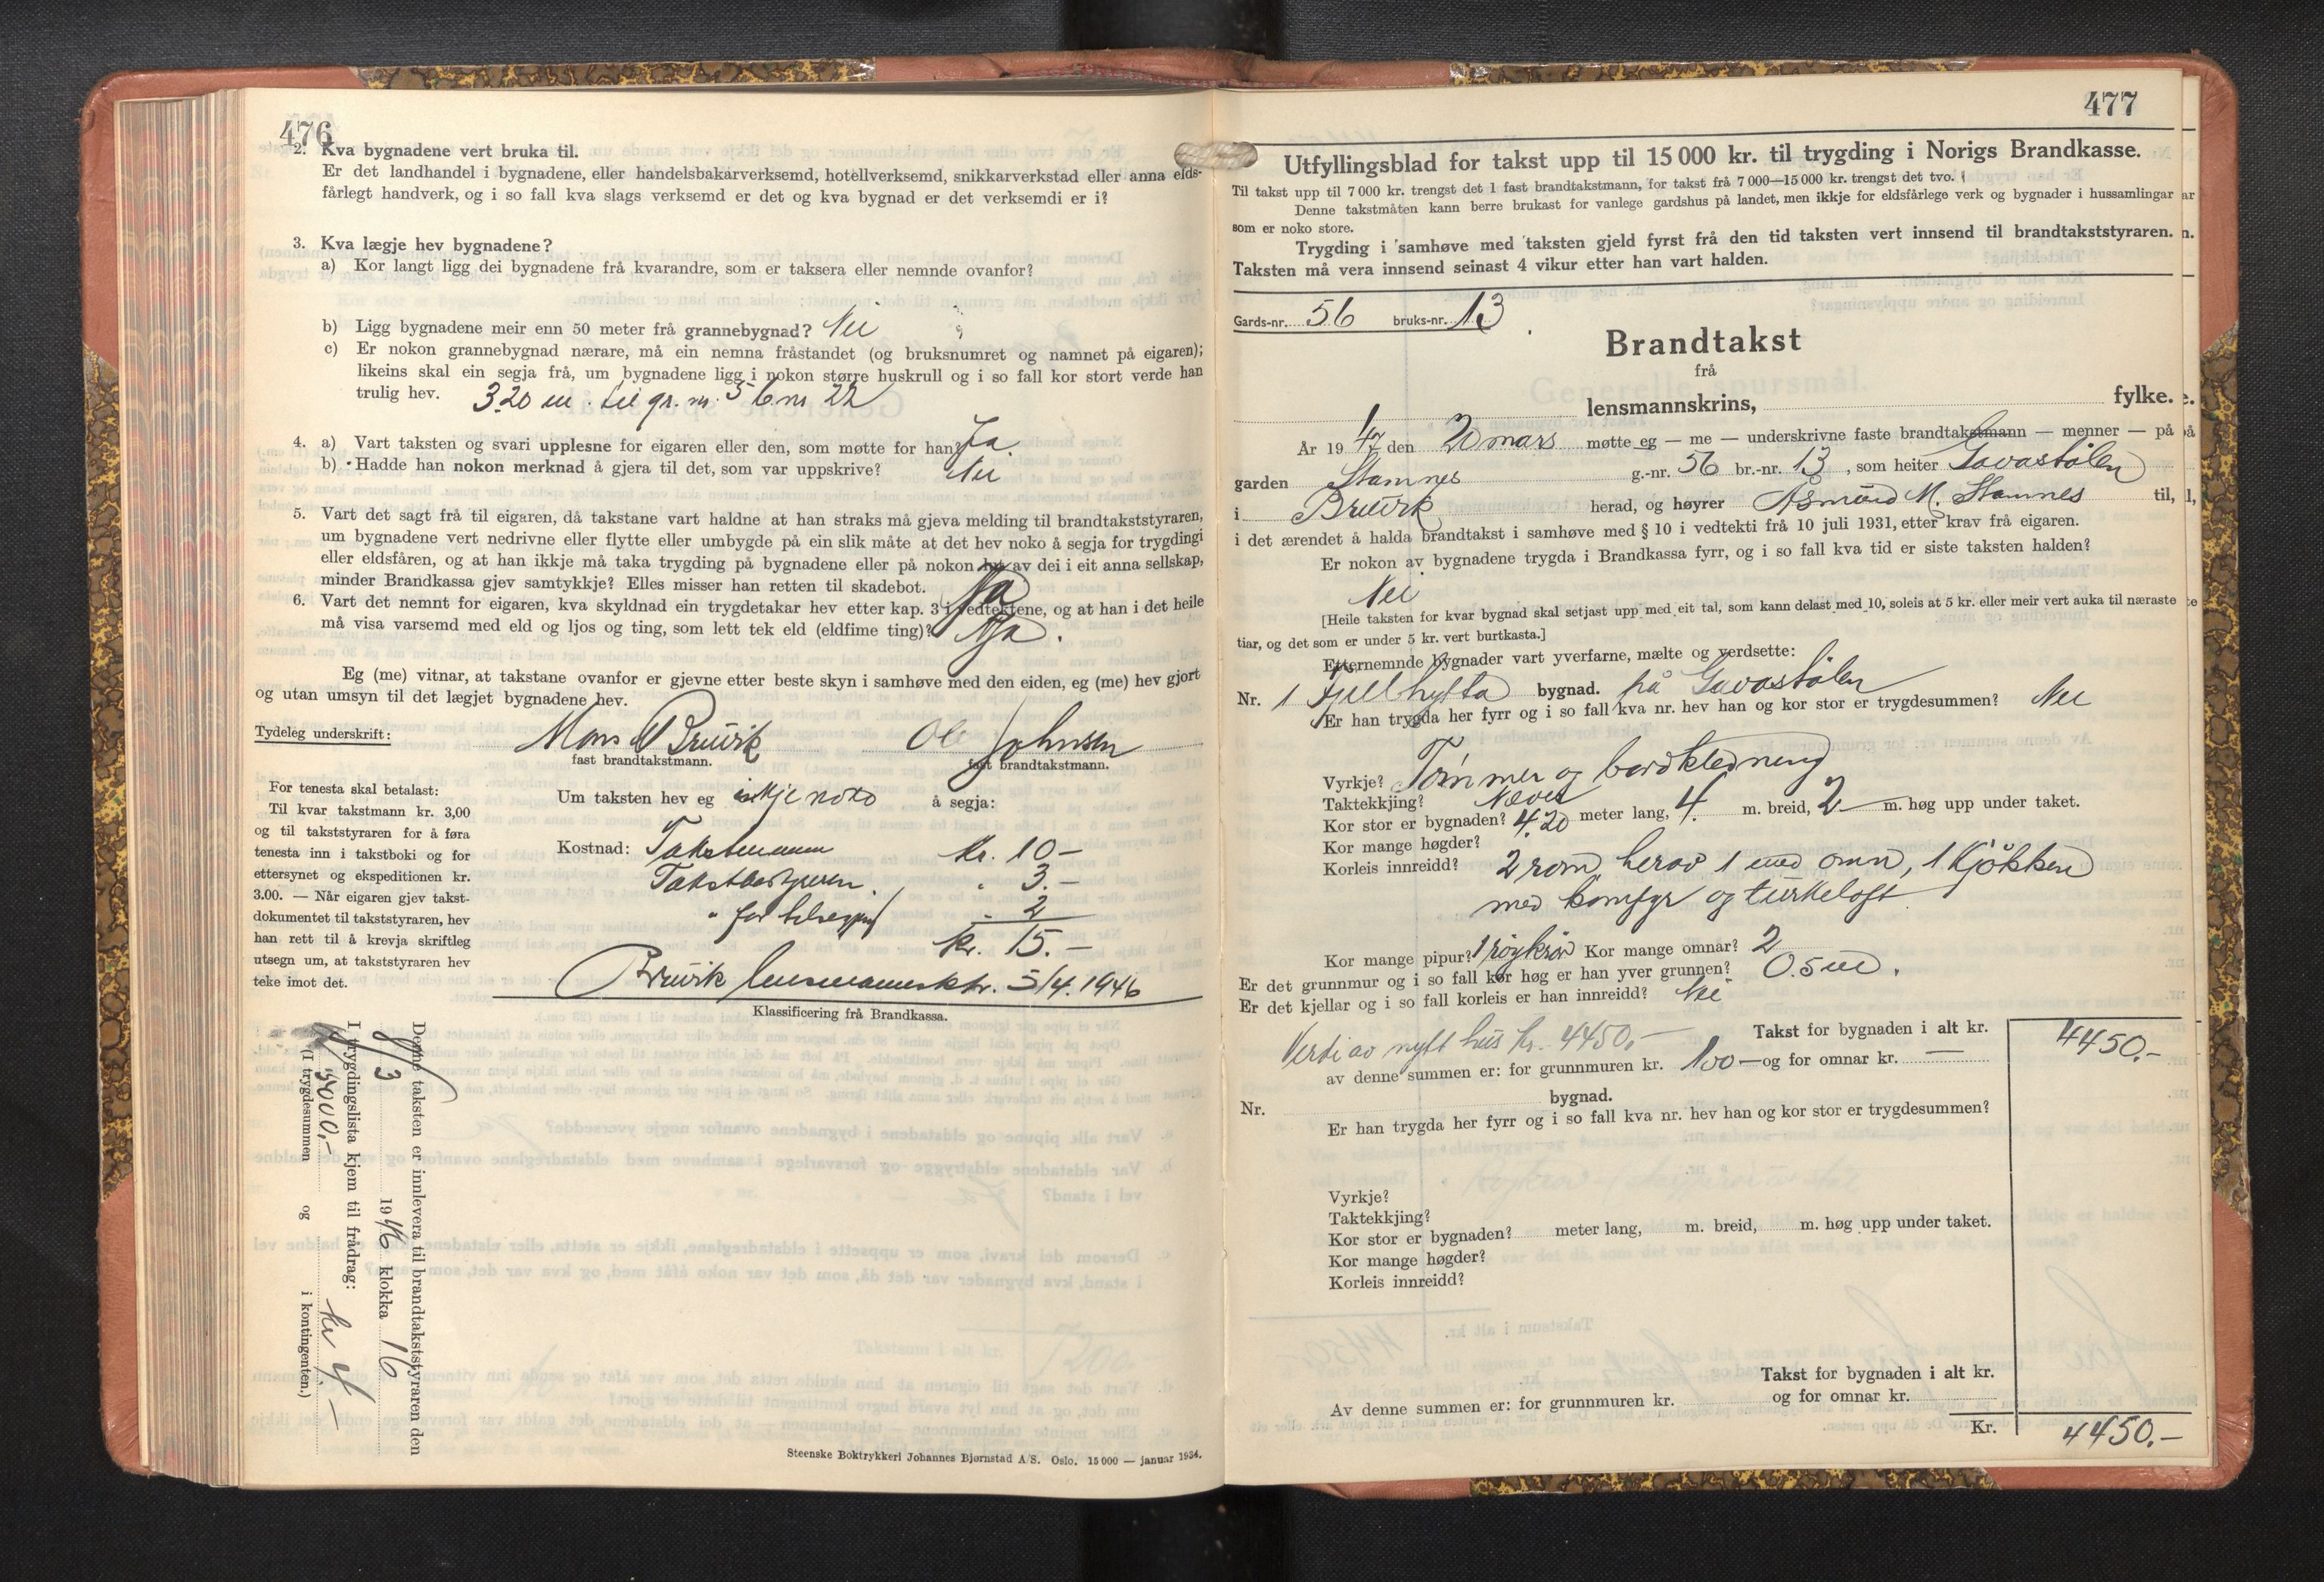 476
2. Kva bygnadene vert bruka til.
Er det landhandel i bygnadene, eller handelsbakarverksemd, hotellverksemd, snikkarverkstad eller anna elds-
fårlegt handverk, og i so fall kva slags verksemd er det og kva bygnad er det verksemdi er i?
3. Kva lægje hev bygnadene?
a) Kor langt ligg dei bygnadene frå kvarandre, som er taksera eller nemnde ovanfor?
b) Ligg bygnadene meir enn 50 meter frå grannebygnad? Nei
c) Er nokon grannebygnad nærare, må ein nemna fråstandet (og bruksnumret og namnet på eigaren);
likeins skal ein segja frå, um bygnadene ligg i nokon større huskrull og i so fall kor stort verde han
trulig hev. 3.20 m. til gr. nr. 56 nr 22
4. a) Vart taksten og svari upplesne for eigaren eller den, som møtte for han? Ja.
b) Hadde han nokon merknad å gjera til det, som var uppskrive? Nei
5. Vart det sagt frå til eigaren, då takstane vart haldne at han straks må gjeva melding til brandtakststyraren,
um bygnadene vert nedrivne eller flytte eller umbygde på ein slik måte at det hev noko å segja for trygdingi
eller eldsfåren, og at han ikkje må taka trygding på bygnadene eller på nokon lut av dei i eit anna sellskap,
minder Brandkassa gjev samtykkje? Elles misser han retten til skadebot. Ja
6. Vart det nemnt for eigaren, kva skyldnad ein trygdetakar hev etter kap. 3 i vedtektene, og at han i det heile
må visa varsemd med eld og ljos og ting, som lett tek eld (eldfime ting)? Ja.
Eg (me) vitnar, at takstane ovanfor er gjevne etter beste skyn i samhøve med den eiden, eg (me) hev gjort
og utan umsyn til det lægjet bygnadene hev.
Tydeleg underskrift: Mons Bruvik Ole Johnsen
fast brandtakstmann. fast brandtakstmann.
For tenesta skal betalast:
Til kvar takstmann kr. 3,00
og til takststyraren for å føra
tenesta inn i takstboki og for
ettersynet og ekspeditionen kr.
3.00. — Når eigaren gjev takst-
dokumentet til takststyraren, hev
han rett til å krevja skriftleg
utsegn um, at takststyraren hev
teke imot det.
Um taksten hev eg ikkje noko å segja:
Kostnad: Takstmenn kr. 10-
Takstbestyreren. " 3.-
" for - 2
kr. 15.-
Bruvik lensmannsktr. 5/4.1946
Klassificering frå Brandkassa.
Denne taksten er innlevera til brandtakststyraren den
/3 1946 klokka 16
I trygdingslista kjem til frådrag:
(I trygdesummen og kr i kontingenten.)
Steenske Boktrykkeri Johannes Bjørnstad A/S. Oslo. 15 000 — januar 1934.
477
Utfyllingsblad for takst upp til 15 000 kr. til trygding i Norigs Brandkasse.
Til takst upp til 7 000 kr. trengst det 1 fast brandtakstmann, for takst frå 7 000—15 000 kr. trengst det tvo.
Denne takstmåten kann berre brukast for vanlege gardshus på landet, men ikkje for eldsfårlege verk og bygnader i hussamlingar
som er noko store.
Trygding i samhøve med taksten gjeld fyrst frå den tid taksten vert innsend til brandtakststyraren.
Taksten må vera innsend seinast 4 vikur etter han vart halden.
Gards-nr. 56 bruks-nr. 13
Brandtakst
frå
lensmannskrins, fylke.
År 19 den 20 mars møtte eg — me — underskrivne faste brandtakstmann — menner — på
garden Stamnes g.-nr. 56 br.-nr. 13, som heiter Gavastølen
i Bruvik herad, og høyrer Åsmund M. Stamnes til,
i det ærendet å halda brandtakst i samhøve med § 10 i vedtekti frå 10 juli 1931, etter krav frå eigaren.
Er nokon av bygnadene trygda i Brandkassa fyrr, og i so fall kva tid er siste taksten halden?
Nei
[Heile taksten for kvar bygnad skal setjast upp med eit tal, som kann delast med 10, soleis at 5 kr. eller meir vert auka til næraste
tiar, og det som er under 5 kr. vert burtkasta.]
Etternemnde bygnader vart yverfarne, mælte og verdsette:
Nr. 1 Fjellhytta bygnad. på Gavastølen
Er han trygda her fyrr og i so fall kva nr. hev han og kor stor er trygdesummen? Nei
Vyrkje? Tømmer og bordkledning
Taktekkjing? Never
Kor stor er bygnaden? 4.20 meter lang, 4. m. breid, 2 — m. høg upp under taket.
Kor mange høgder?
Korleis innreidd? 2 rom, herav 1 med omn, 1 kjøkken
med komfyr og turkeloft
Kor mange pipur? 1 røykrør Kor mange omnar? 2
Er det grunnmur og i so fall kor høg er han yver grunnen? 0.5 m.
Er det kjellar og i so fall korleis er han innreidd? Nei
Verdi av nytt hus kr. 4450.- Takst for bygnaden i alt kr. 4450.-
av denne summen er: for grunnmuren kr. 100 — og for omnar kr. —
Nr. bygnad.
Er han trygda her fyrr og i so fall kva nr. hev han og kor stor er trygdesummen?
Vyrkje?
Taktekkjing?
Kor stor er bygnaden? meter lang, m. breid, m. høg upp under taket.
Kor mange høgder?
Korleis innreidd?
Takst for bygnaden i alt kr.
Av denne summen er: for grunnmuren kr. og for omnar kr.
Kr. 4450.-